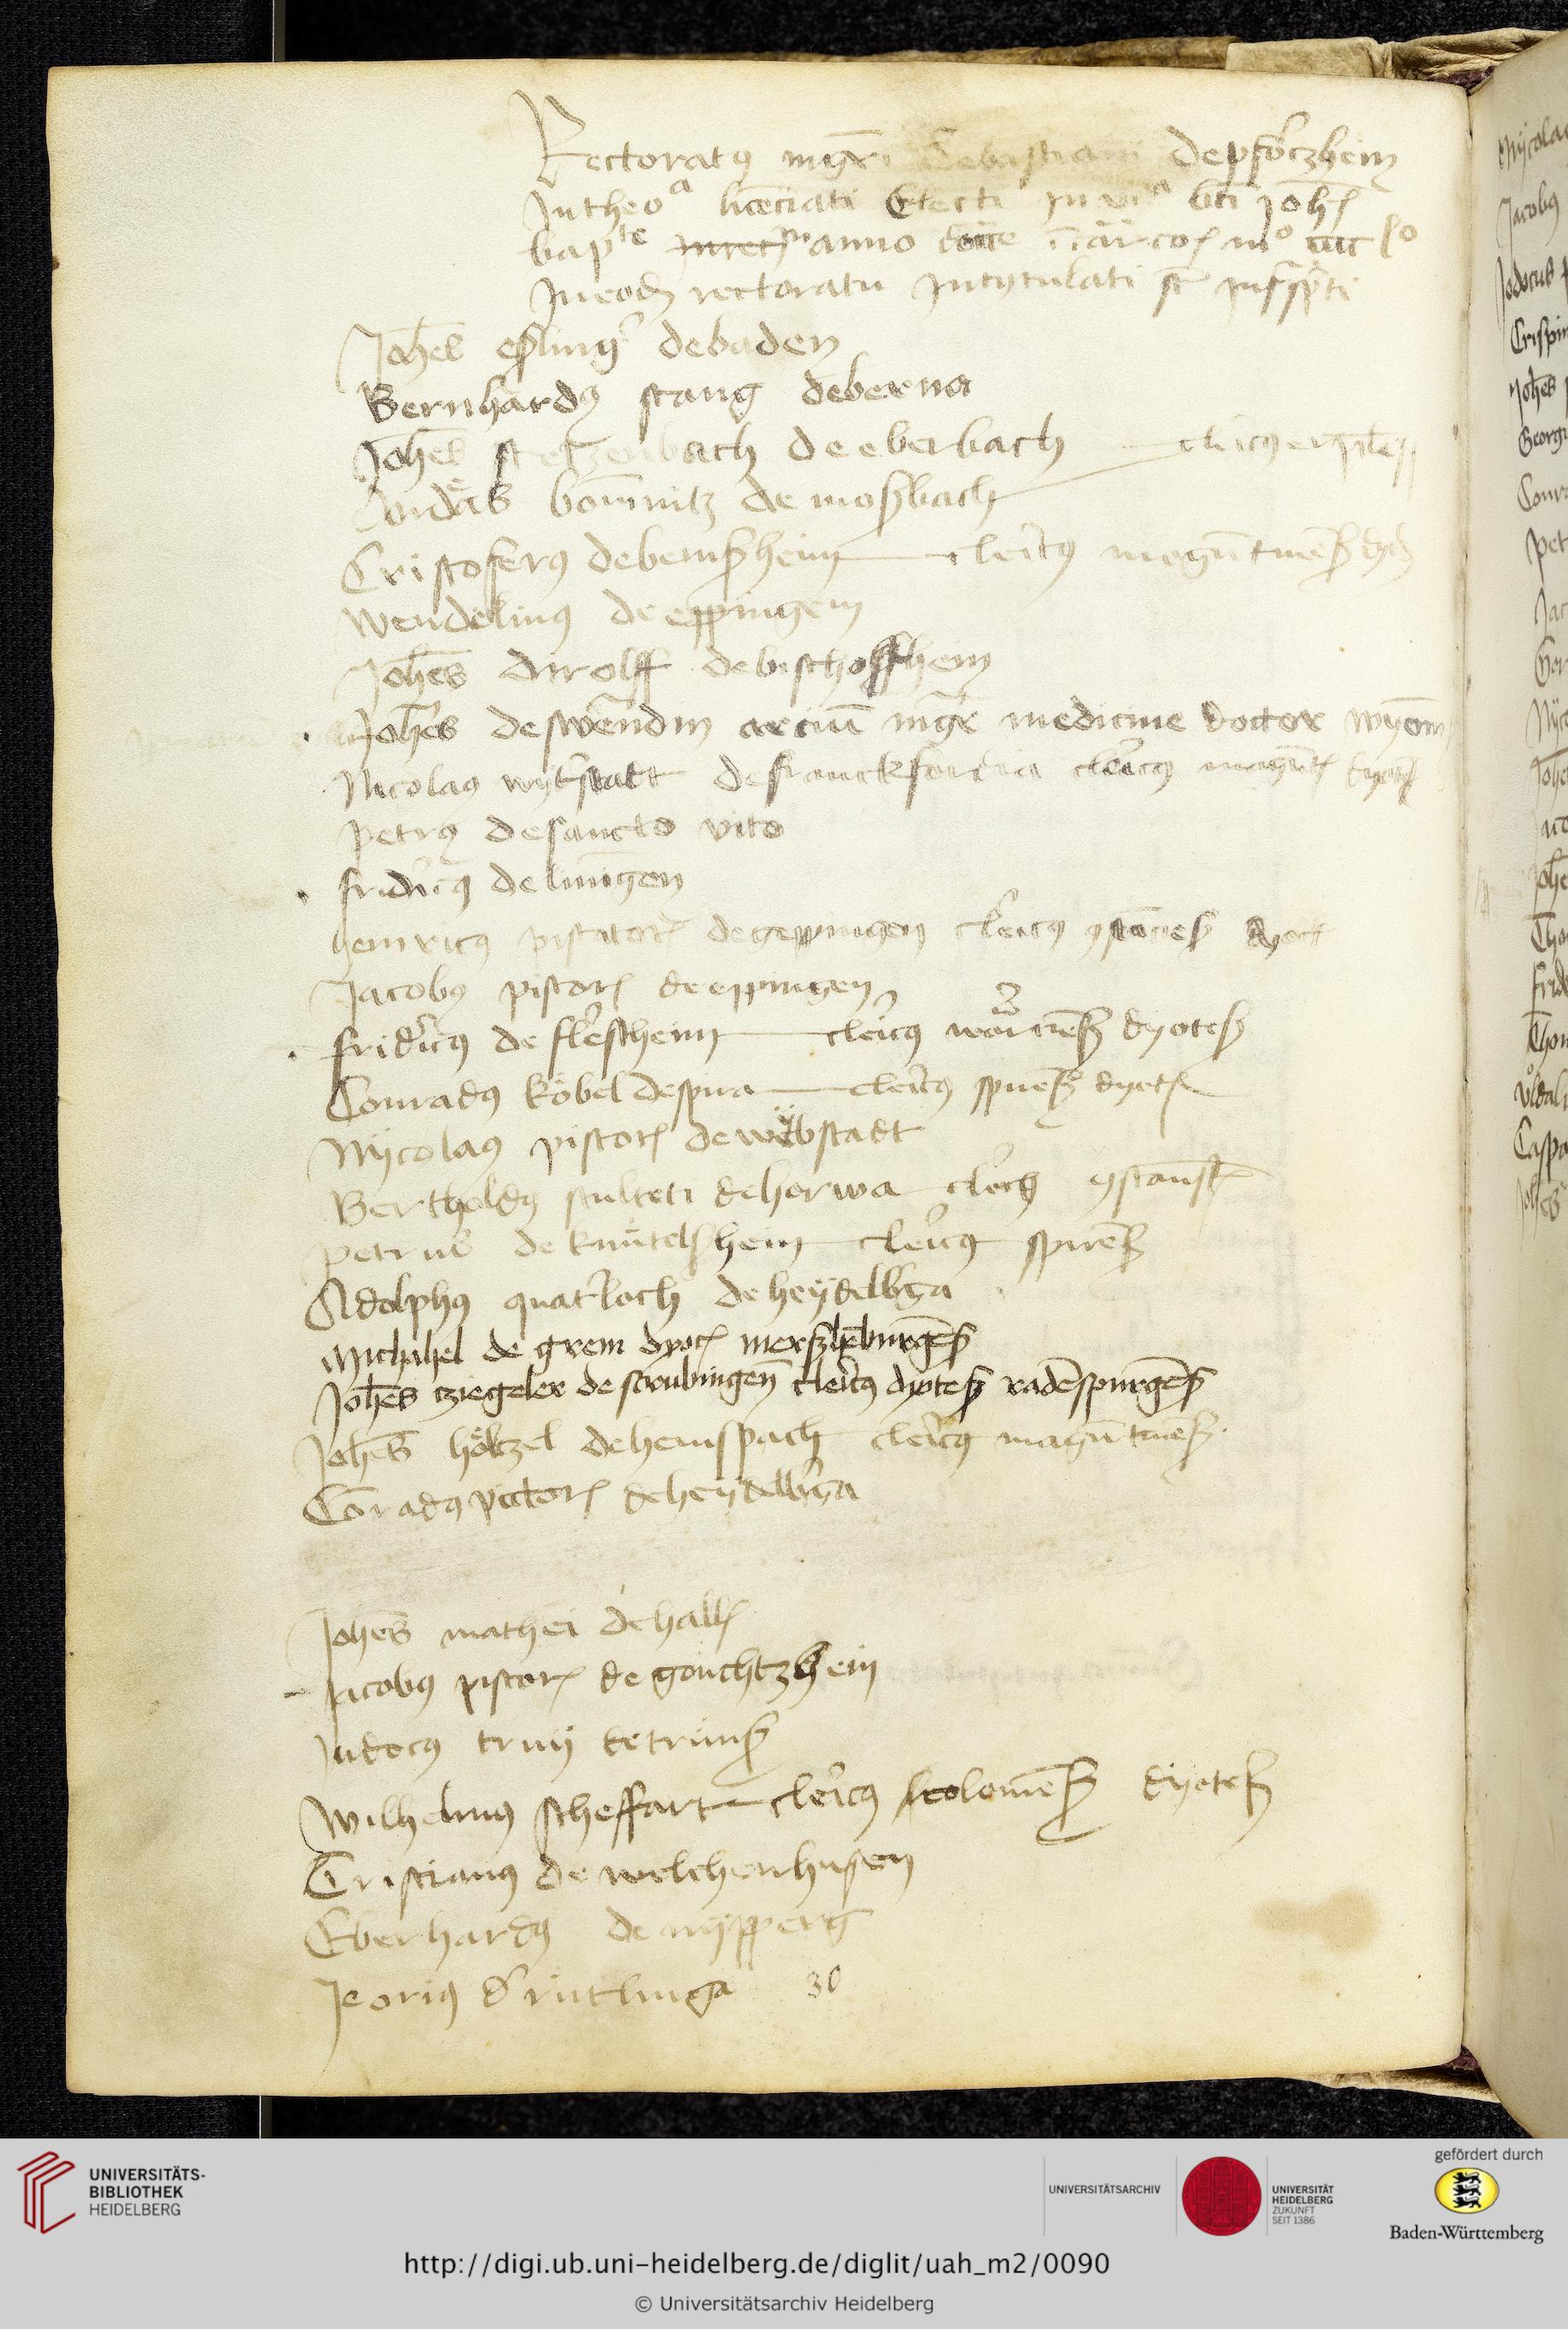 Rectoratus mgri Sebastiani de pforczhein
In theoa licenciati Electi in via bti Joh
bapte in anno dni mo cccc lo
In eodem rectoratu Intytulati st infrascpti
Johes esling debaden
Bernhardus stang de berna
Johes stetzenbach de eberbach clericus
Andreas bomnitz de moszbach
Cristoferus de bemszheim clericus maguntinensz dyoc
Wendelinus de eppingen
Johes Arolff de bischoffhein
Johes de swendin arciu mgr medicine doctor
Nicolaus wytstatt de franckfordia clericus magunt dyoc
petrus de sancto vito
fridricus de liningen
heinricus pistator de geppingen clericus 9stanciesz dyoc
Jacobus pistor de eppingen
fridricus de flerscheim clericus wormesz dyotesz
Conradus kobel de spira clericus spirensz dyotes
Nycolaus pistor de weibstadt
Bertholdus sculteti de horwa clericus 9stans
petrus de knutelshein clericus spirensz
Adolphus quatloch de heydelbga
Michahel de grem dyoc merszheburgesz
Johes cziegeler de strubingen clericus dyotesz radesspurgesz
Johes holtzel de hemspach clericus maguntinesz
Conradus pictor de heydelbga
Johes mathei de hall
Jacobus pistor de gouchtzhein
Judocus truy de
Wilhelmus scheffart clericus coloniesz dyotesz
Cristianus de welchenhusen
Eberhardus de nypperg
Jeorius d rutlinga 30
Jacobus
Jodocus
Johes
UNIVERSITÄTS-
BIBLIOTHEK
HEIDELBERG
UNIVERSITÄTSARCHIV
UNIVERSITÄT
HEIDELBERG
ZUKUNFT
SEIT 1386
gefördert durch
Baden-Württemberg
http://digi.ub.uni-heidelberg.de/diglit/uah_m2/0090
© Universitätsarchiv Heidelberg